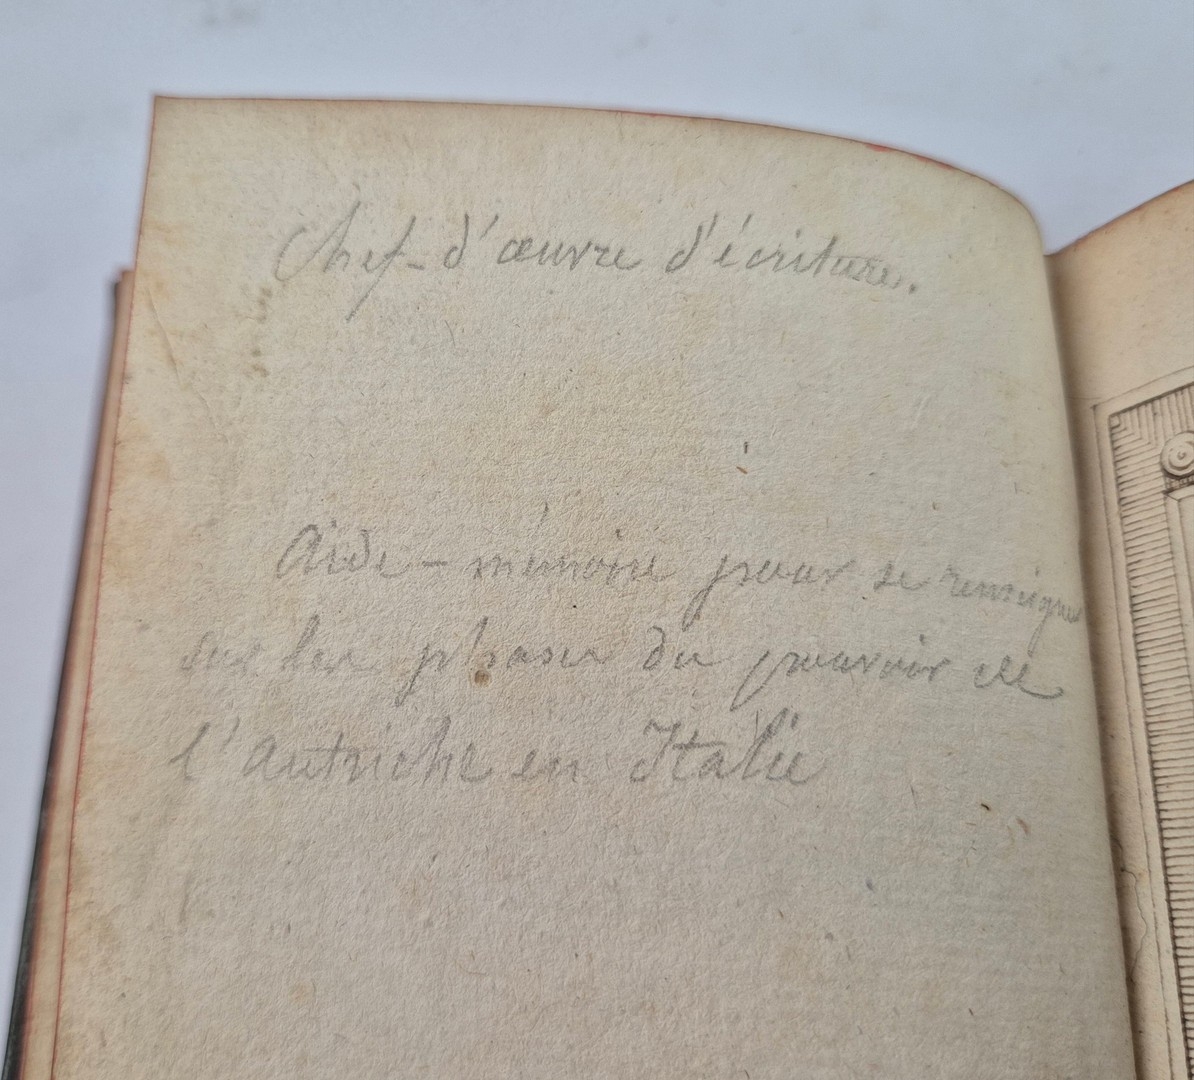 Chef-d'œuvre d'écriture.
Aide-mémoire pour se renseigner
sur les phases du pouvoir de
l'Autriche en Italie